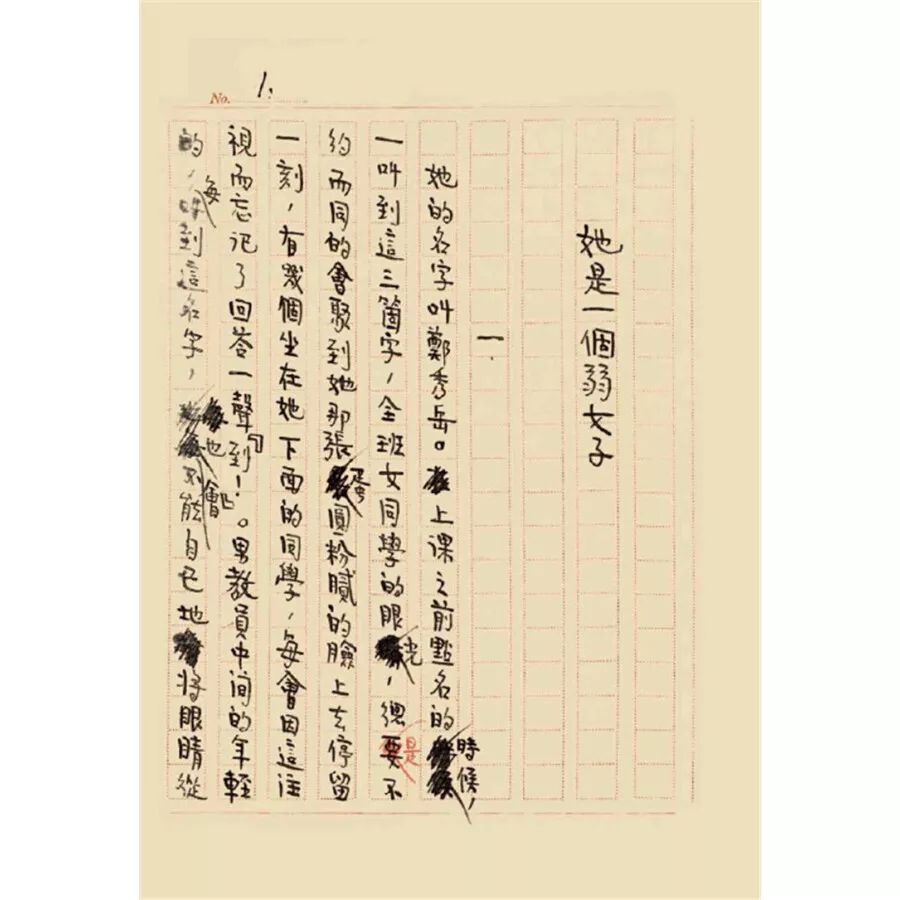 No. 1.
她是一個弱女子
一.
她的名字叫鄭秀岳。上课之前點名的時候，
一叫到這三箇字，全班女同學的眼光，總要不
約而同的會聚到她那張蛋圓粉膩的臉上去停留
一刻，有幾個坐在她下面的同學，每會因這注
視而忘记了回答一聲『到！』。男教員中间的年輕
的，每叫到這名字，也會不能自已地將眼睛從